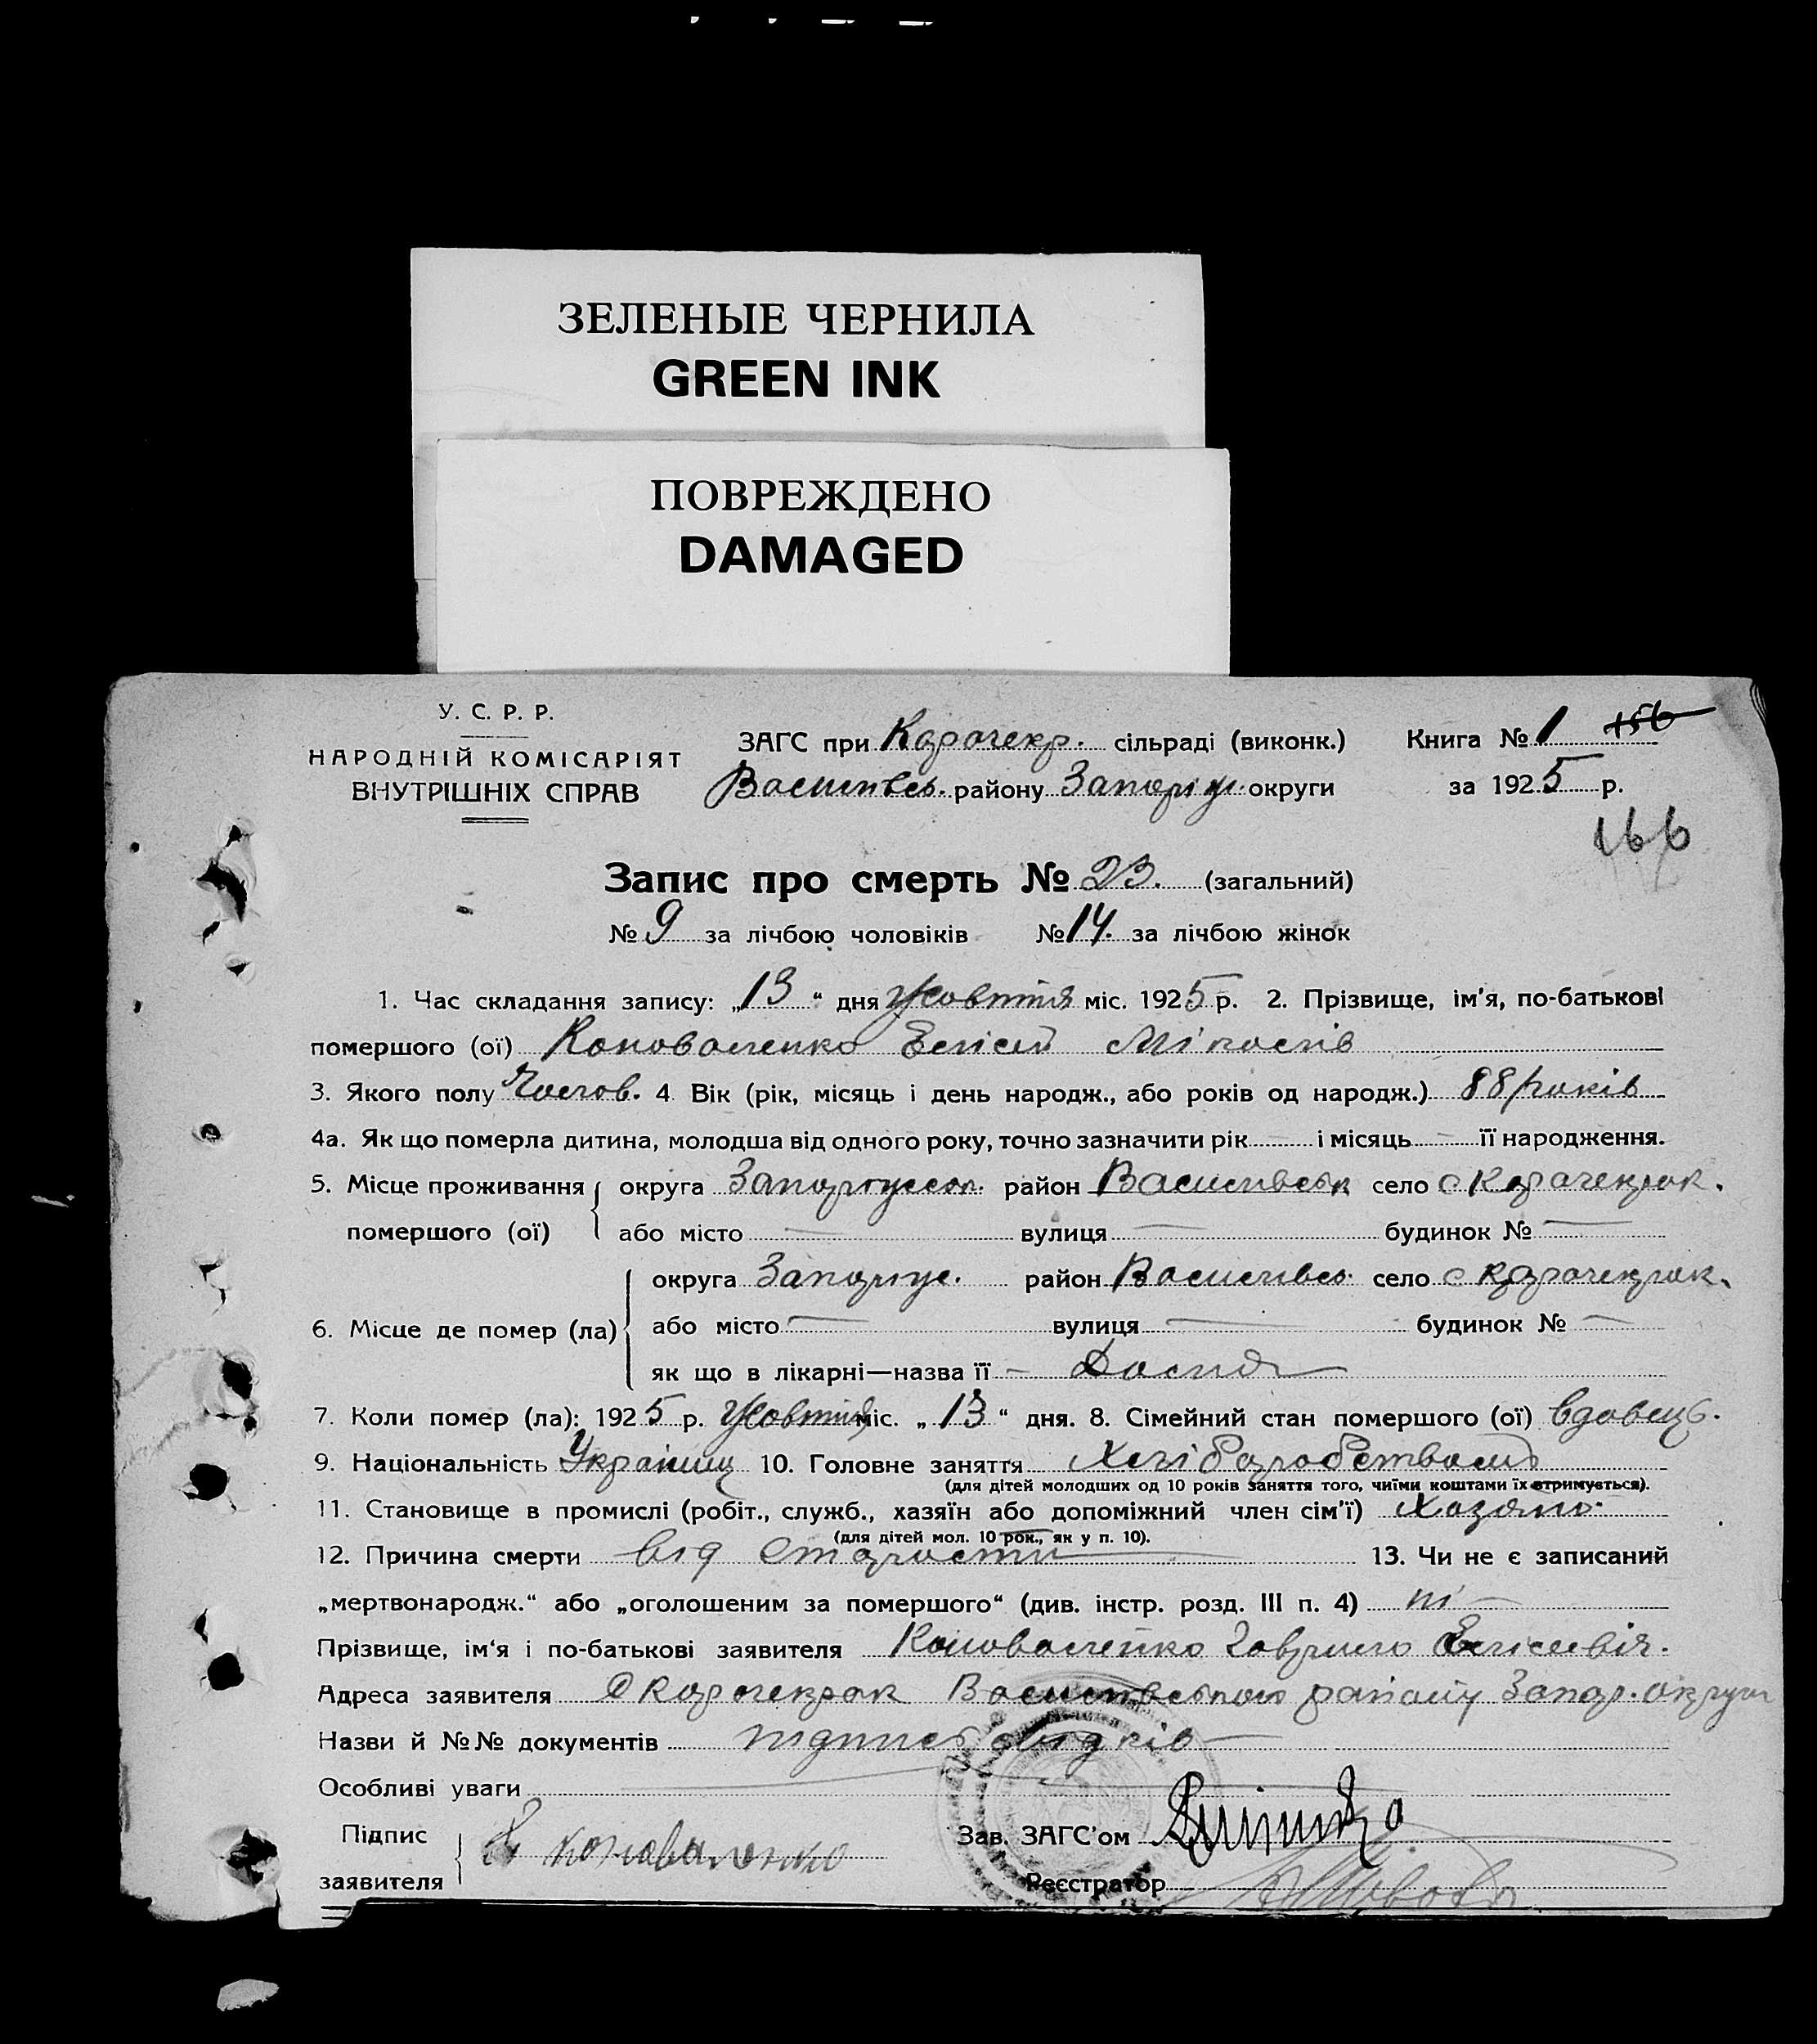 ЗЕЛЕНЫЕ ЧЕРНИЛА
GREEN INK
ПОВРЕЖДЕНО
DAMAGED
У. С. Р. Р.
НАРОДНІЙ КОМІСАРІЯТ
ВНУТРІШНІХ СПРАВ
ЗАГС при Карачекр. сільраді (виконк.) Книга № 1 156
Василівсь. району Запоріж. округи за 1925 р.
166
Запис про смерть № 23. (загальний)
№ 9 за лічбою чоловіків № 14. за лічбою жінок
1. Час складання запису: „13“ дня Жовтня міс. 1925 р. 2. Прізвище, ім'я, по-батькові
помершого (ої) Коноваленко Елісей
3. Якого полу Чолов. 4 Вік (рік, місяць і день народж., або років од народж.) 88 років
4а. Як що померла дитина, молодша від одного року, точно зазначити рік — і місяць — її народження.
5. Місце проживання округа район Василівськ село с Карачекрак.
помершого (ої) або місто — вулиця — будинок № —
округа Запоріж. район Василівсь. село с Карачекрак.
6. Місце де помер (ла) або місто — вулиця — будинок № —
як що в лікарні—назва її —
7. Коли помер (ла): 1925 р. Жовтня міс. „13“ дня. 8. Сімейний стан помершого (ої) вдовець.
9. Національність Українц 10. Головне заняття
(для дітей молодших од 10 років заняття того, чиїми коштами їх отримується).
11. Становище в промислі (робіт., служб., хазяїн або допоміжний член сім'ї)
(для дітей мол. 10 рок., як у п. 10).
12. Причина смерти від старости 13. Чи не є записаний
„мертвонародж.“ або „оголошеним за помершого“ (див. інстр. розд. III п. 4) ні —
Прізвище, ім'я і по-батькові заявителя Коноваленко Гаврило
Адреса заявителя с Карачекрак Василівського району Запор. округи
Назви й №№ документів підпись свідків —
Особливі уваги
Підпис
заявителя Коноваленко
Зав. ЗАГС'ом
Реєстратор